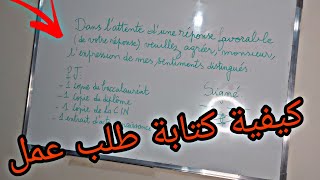 Dans l'attente d'une réponse favorable
(de votre réponse) veuillez agréer, monsieur,
l'expression de mes sentiments distingués.
Signé
P.J:
- 1 copie du baccalauréat
- 1 copie de diplôme
- 1 copie de la CIN
- 1 extrait d'
كيفية كتابة طلب عمل